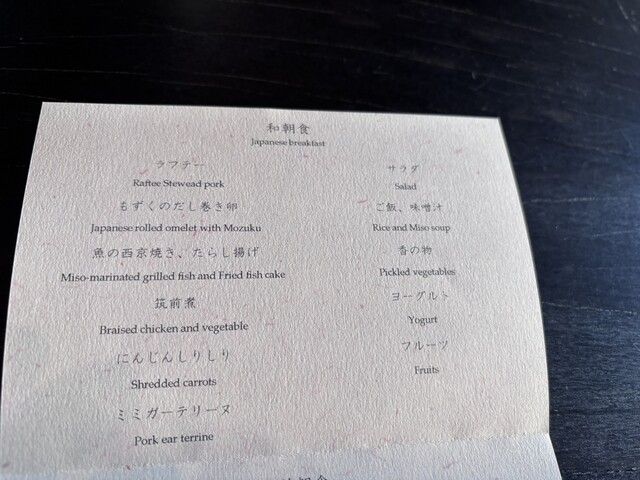 和朝食
Japanese breakfast
ラフテー
Raftee Stewead pork
もずくのだし巻き卵
Japanese rolled omelet with Mozuku
魚の西京焼き、たらし揚げ
Miso-marinated grilled fish and Fried fish cake
筑前煮
Braised chicken and vegetable
にんじんしりしり
Shredded carrots
ミミガーテリーヌ
Pork ear terrine
サラダ
Salad
ご飯、味噌汁
Rice and Miso soup
香の物
Pickled vegetables
ヨーグルト
Yogurt
フルーツ
Fruits